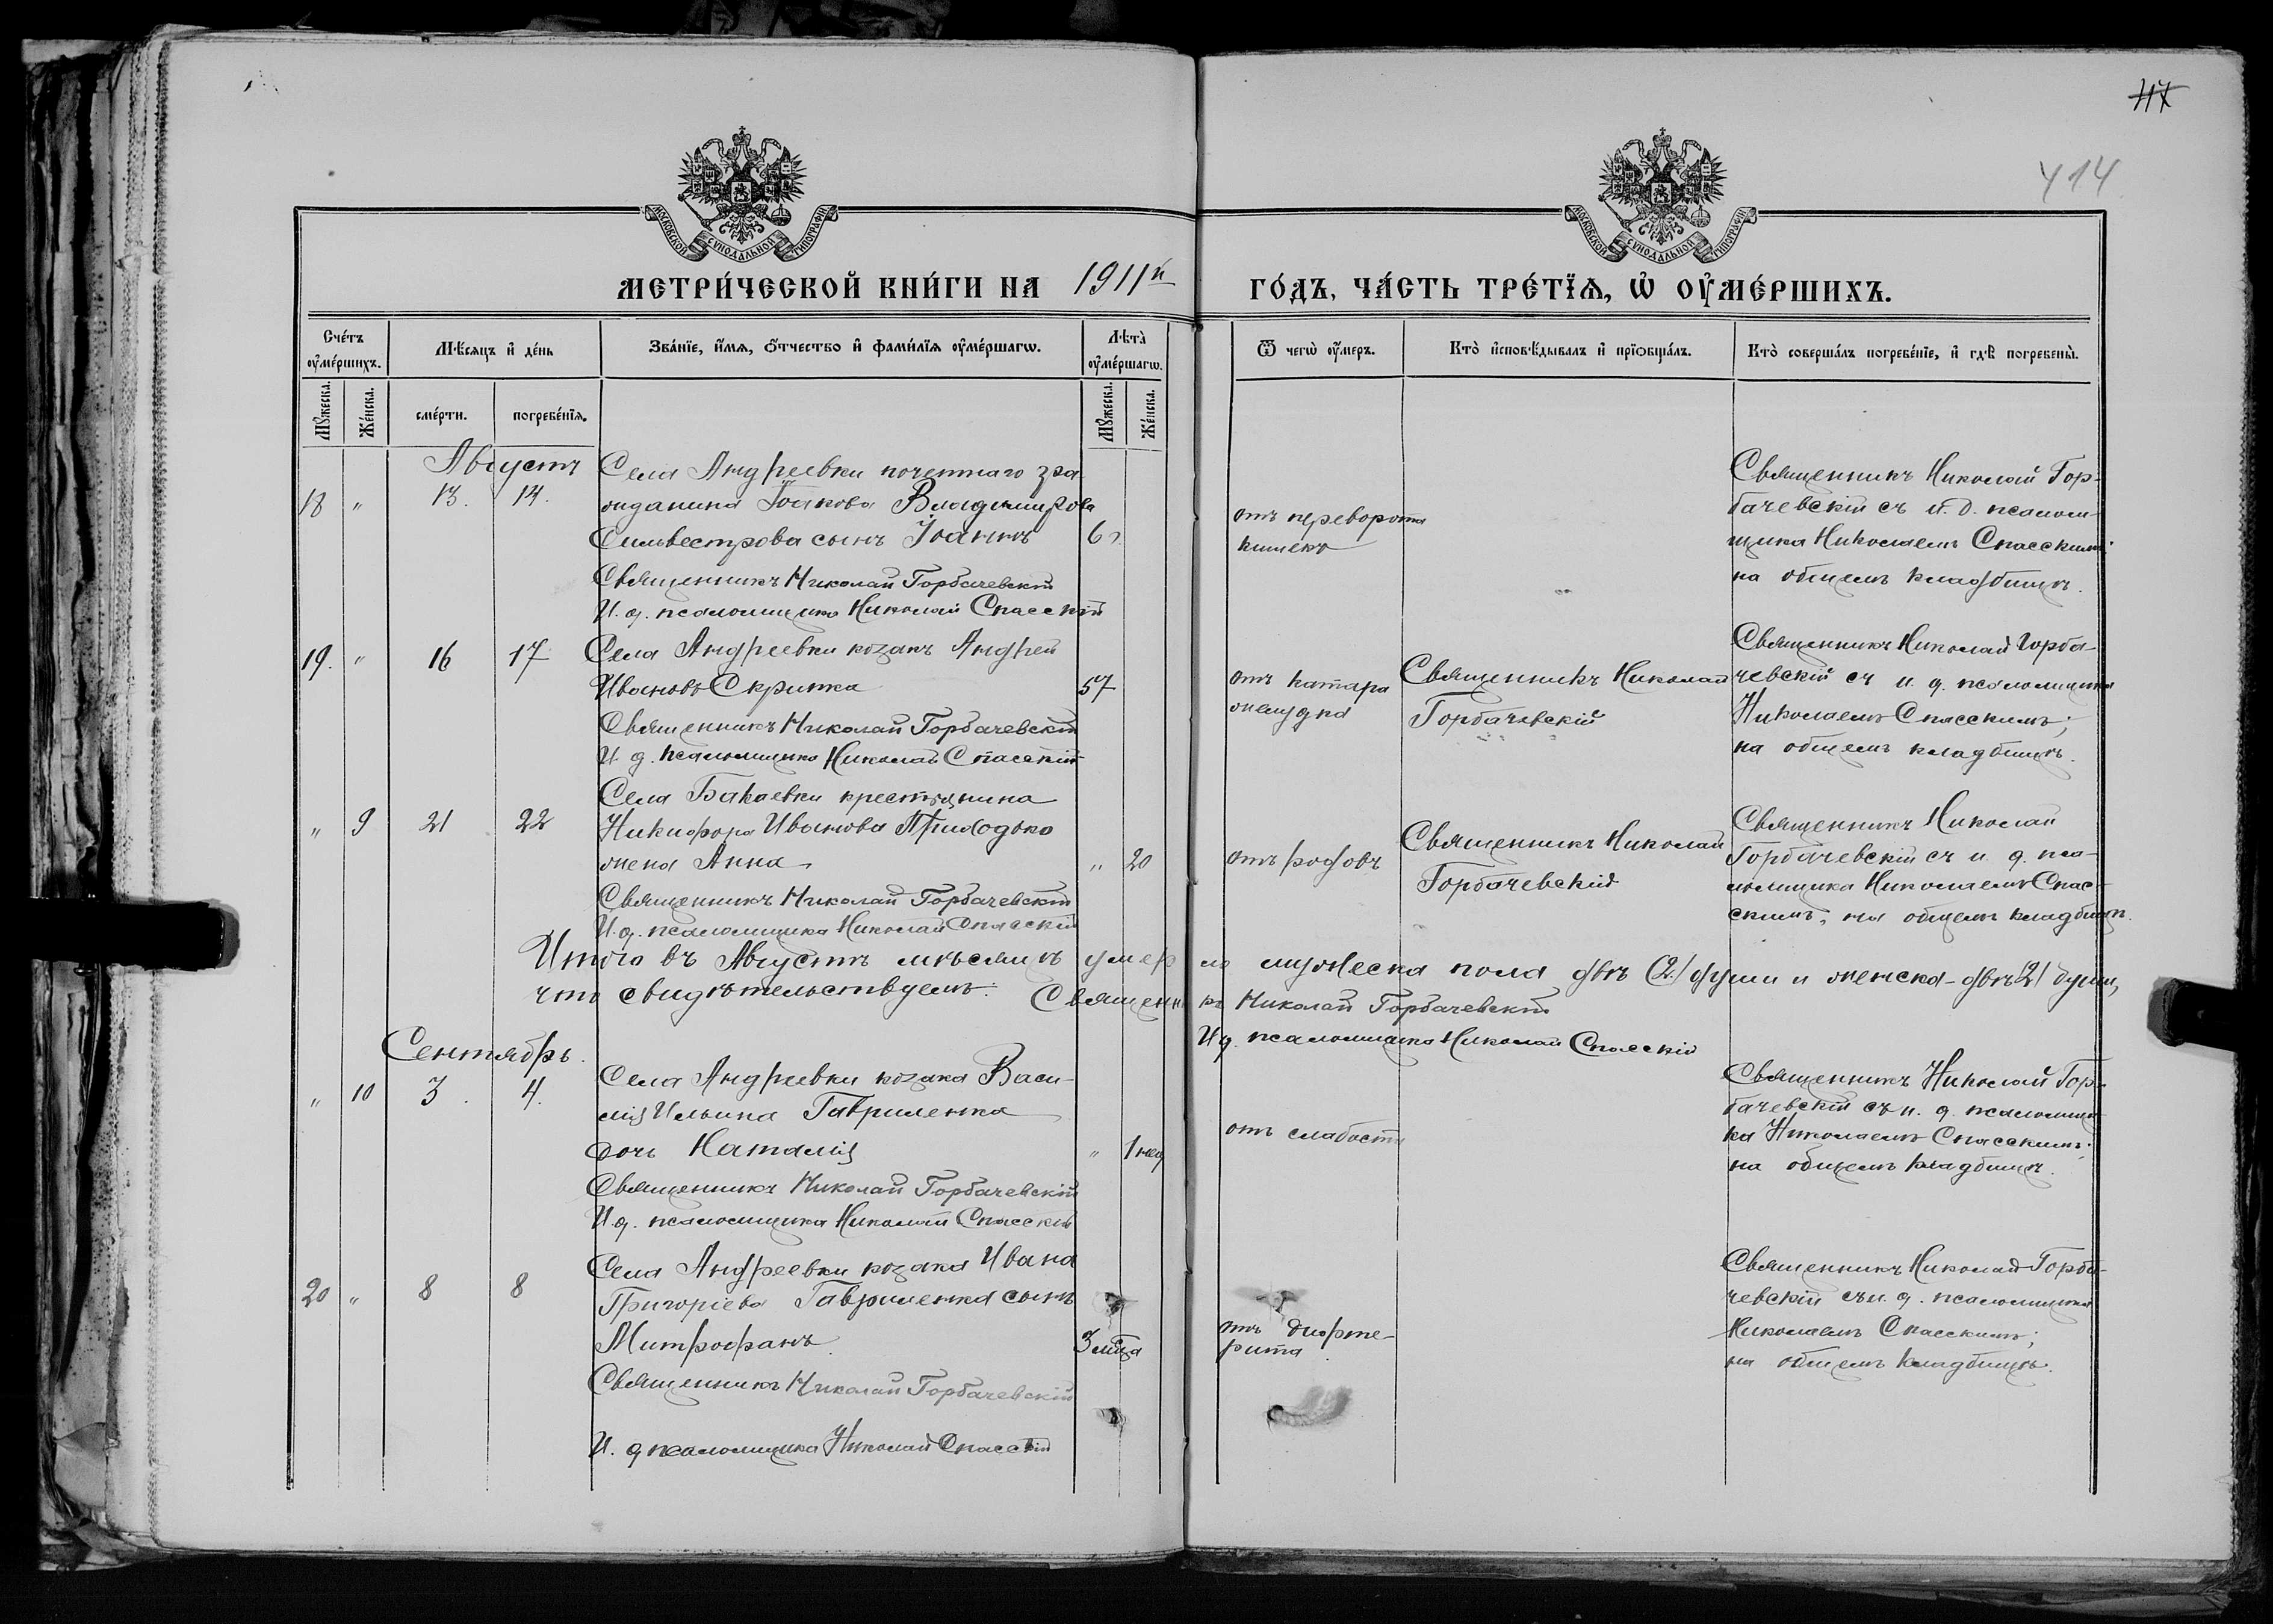 117
414
МОСКОВСКОЙ СѴНОДАЛЬНОЙ ТИПОГРАФІИ
МОСКОВСКОЙ СѴНОДАЛЬНОЙ ТИПОГРАФІИ
МЕТРИ́ЧЕСКОЙ КНИ́ГИ НА 1911й ГО́ДЪ, ЧА́СТЬ ТРЕ́ТЇѦ, Ѡ҆ ОУ҆МЕ́РШИХЪ.
Сче́тъ оу҆ме́ршихъ.
Мѣ́сяцъ и҆ де́нь
Зва́нїе, и҆́мѧ, ѻ҆́тчество и҆ фами́лїѧ оу҆ме́ршагѡ.
Лѣта̀ оу҆ме́ршагѡ.
Ѿ чегѡ̀ оу҆́меръ.
Кто̀ и҆сповѣ́дывалъ и҆ прїѡбща́лъ.
Кто̀ соверша́лъ погребе́нїе, и҆ гдѣ̀ погребены̀.
Мꙋ́жеска. Же́нска. сме́рти. погребе́нїѧ. Мꙋ́жеска. Же́нска.
Августъ
18 " 13. 14.
Села Андреевки почетнаго гра
жданина Іоакова Владимірова
Сильвестрова сынъ Іоаннъ 6
Священникъ Николай Горбачевскій
И. д. псаломщика Николай Спасскій
отъ переворота
кишекъ
Священникъ Николай Гор-
бачевскій съ и. д. псалом-
щика Николаемъ Спасскимъ;
на общемъ кладбищѣ.
19. " 16 17
Села Андреевки козакъ Андрей
Ивановъ Скрипка 57
Священникъ Николай Горбачевскій
И. д. псаломщика Николай Спасскій
отъ катара
желудка
Священникъ Николай
Горбачевскій
Священникъ Николай Горба-
чевскій съ и. д. псаломщика
Николаемъ Спасскимъ;
на общемъ кладбищѣ.
" 9 21 22
Села Бакаевки крестьянина
Никифора Иванова Приходько
жена Анна " 20
Священникъ Николай Горбачевскій
И. д. псаломщика Николай Спасскій
отъ родовъ
Священникъ Николай
Горбачевскій
Священникъ Николай
Горбачевскій съ и. д. пса-
ломщика Николаемъ Спас-
скимъ, на общемъ кладбищѣ.
Итого въ Августѣ мѣсяцѣ умерло мужеска пола двѣ (2) души и женска - двѣ (2) души,
что свидѣтельствуемъ. Священникъ Николай Горбачевскій
И д. псаломщика Николай Спасскій
Сентябрь.
" 10 3. 4.
Села Андреевки козака Васи-
лія Ильина Гавриленка
дочь Наталія " 1 нед
Священникъ Николай Горбачевскій
И. д. псаломщика Николай Спасскій
отъ слабости
Священникъ Николай Гор-
бачевскій съ и. д. псаломщи-
ка Николаемъ Спасскимъ;
на общемъ кладбищѣ.
20 " 8 8
Села Андреевки козака Ивана
Григоріева Гавриленка сынъ
Митрофанъ. 3 мѣсца
Священникъ Николай Горбачевскій
И. д псаломщика Николай Спасскій
отъ дифте-
рита
Священникъ Николай Горба-
чевскій съ и. д. псаломщика
Николаемъ Спасскимъ;
на общемъ кладбищѣ.